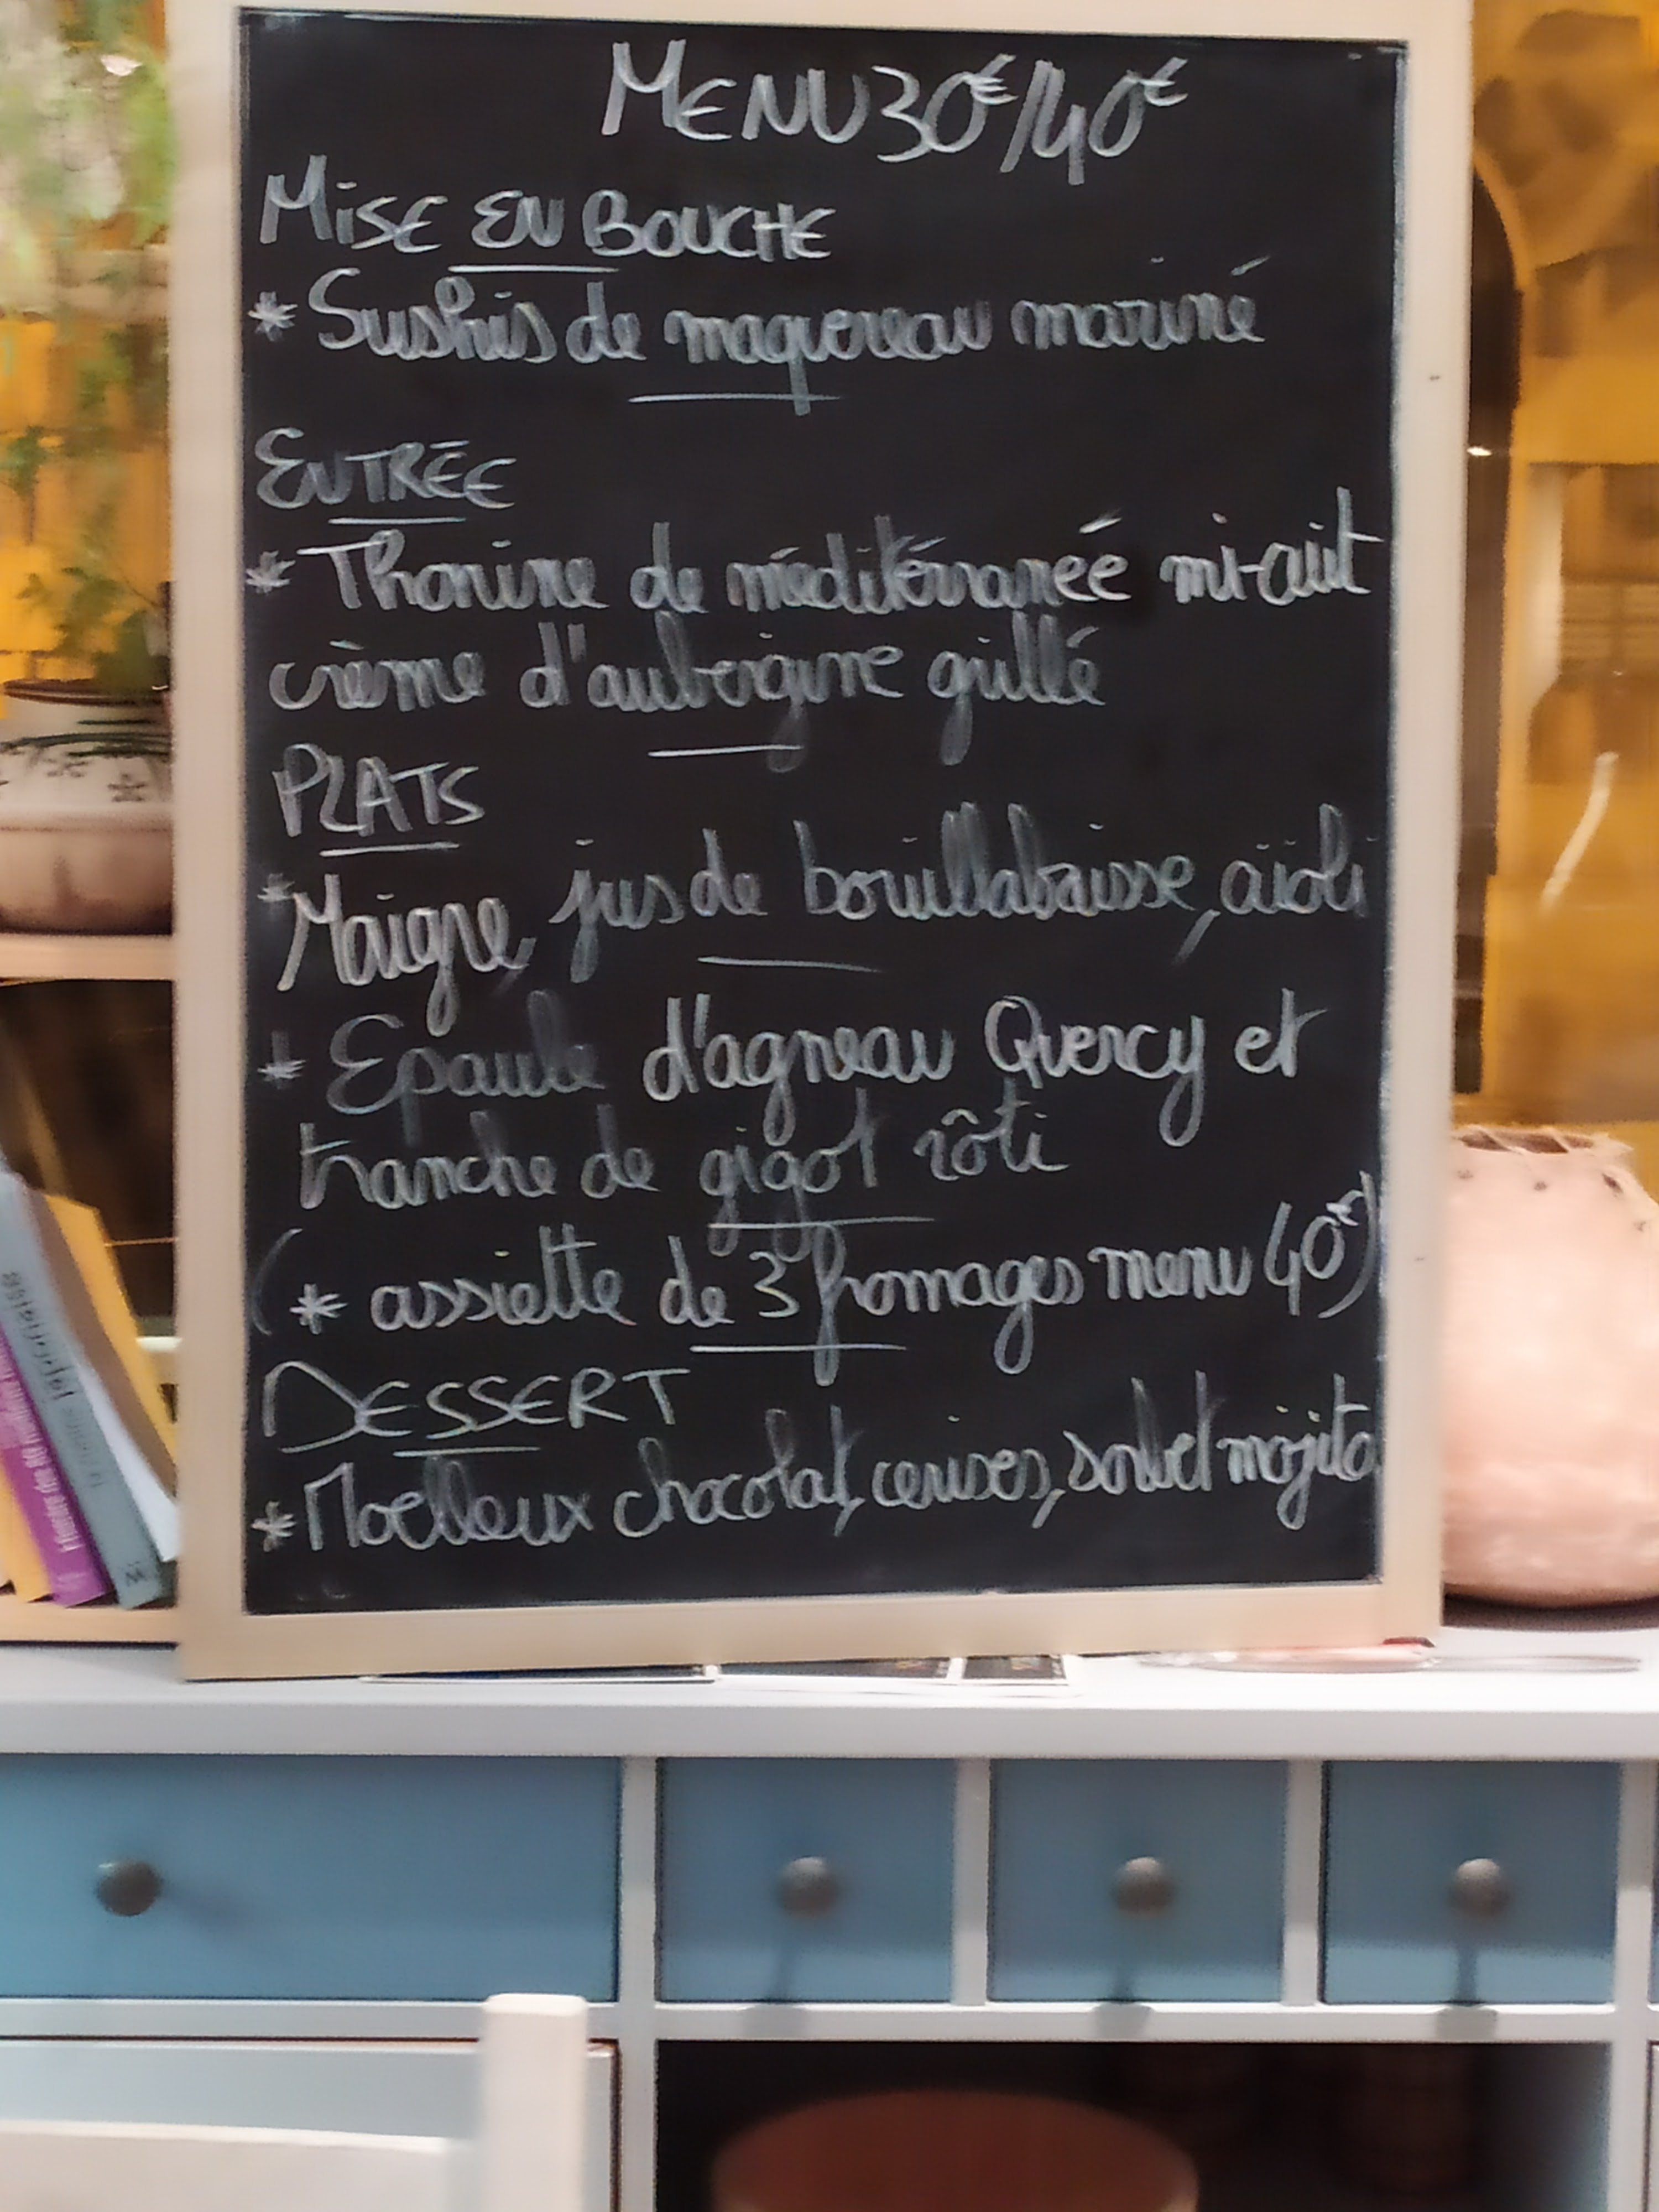 MENU 30€/40€
MISE EN BOUCHE
* Sushis de maquereau mariné
ENTRÉE
* Thonine de méditérranée mi-cuit
crème d'aubergine grillé
PLATS
* Maigre, jus de bouillabaisse, aïoli
* Epaule d'agneau Quercy et
tranche de gigot rôti
(* assiette de 3 fromages menu 40€)
DESSERT
* Moelleux chocolat, cerises, sorbet mojito